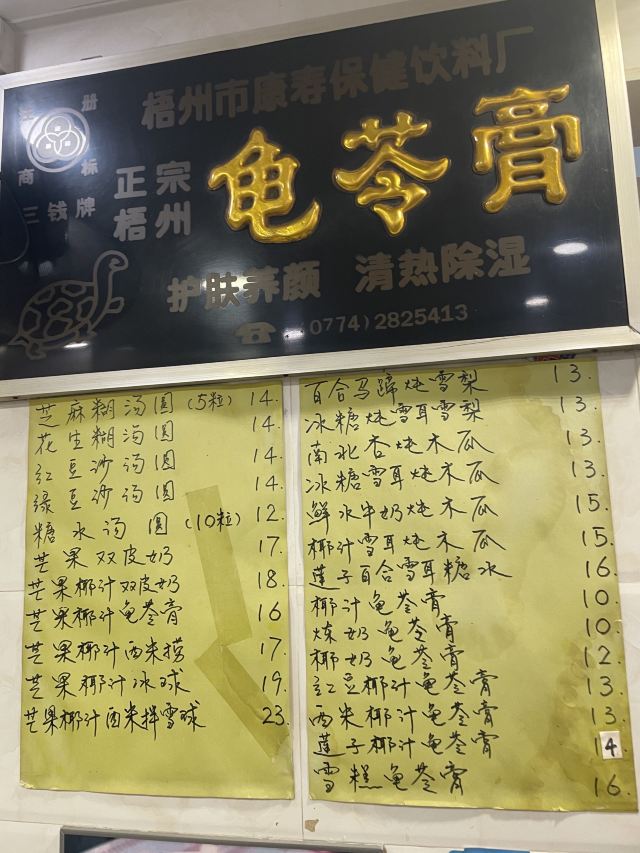 注 册
梧州市康寿保健饮料厂
商 标
三钱牌
正宗
梧州
龟苓膏
护肤养颜 清热除湿
(0774)2825413
芝麻糊汤圆(5粒) 14.
花生糊汤圆 14.
红豆沙汤圆 14.
绿豆沙汤圆 14.
糖水汤圆(10粒) 12.
芒果双皮奶 17.
芒果椰汁双皮奶 18.
芒果椰汁龟苓膏 16
芒果椰汁西米捞 17.
芒果椰汁冰球 19.
芒果椰汁西米拌雪球 23.
百合马蹄炖雪梨 13.
冰糖炖雪耳雪梨 13.
南北杏炖木瓜 13.
冰糖雪耳炖木瓜 13.
鲜水牛奶炖木瓜 15.
椰汁雪耳炖木瓜 15.
莲子百合雪耳糖水 16
椰汁龟苓膏 10
炼奶龟苓膏 10
椰奶龟苓膏 12
红豆椰汁龟苓膏 13.
西米椰汁龟苓膏 13.
莲子椰汁龟苓膏 14
雪糕龟苓膏 16.